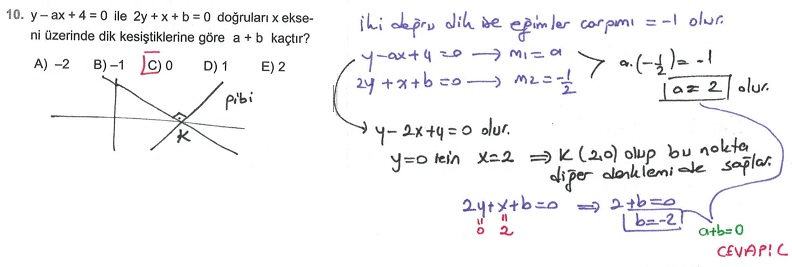 10. y − ax + 4 = 0 ile 2y + x + b = 0 doğruları x ekse-
ni üzerinde dik kesiştiklerine göre a + b kaçtır?
A) −2 B) −1 C) 0 D) 1 E) 2
gibi
K
iki doğru dik ise eğimler çarpımı = -1 olur.
y-ax+4=0 → m1=a
2y+x+b=0 → m2=-1/2
a.(-1/2)=-1
a=2 olur.
y-2x+4=0 olur.
y=0 için x=2 ⇒ K(2,0) olup bu nokta
diğer denklemi de sağlar.
2y+x+b=0 ⇒ 2+b=0
0 2
b=-2
a+b=0
CEVAP C